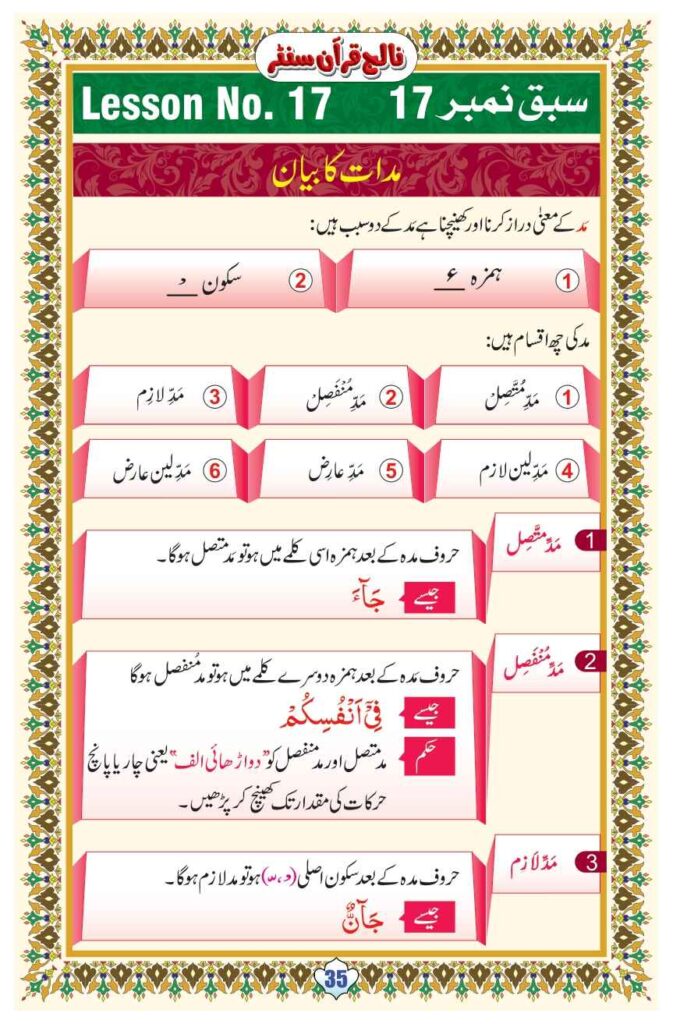 نالج قرآن سنٹر
Lesson No. 17 سبق نمبر 17
مدات کا بیان
مَد کے معنیٰ دراز کرنا اور کھینچنا ہے مَد کے دو سبب ہیں:
1 ہمزہ ء 2 سکون
مد کی چھ اقسام ہیں:
1 مَدِّ مُتَّصِلْ 2 مَدِّ مُنْفَصِلْ 3 مَدِّ لازِم
4 مَدِّ لین لازم 5 مَدِّ عارِض 6 مَدِّ لین عارض
1 مَدِّ مُتَّصِل
حروف مدہ کے بعد ہمزہ اسی کلمے میں ہو تو مَد متصل ہوگا۔
جیسے جَآءَ
2 مَدِّ مُنْفَصِل
حروف مَدہ کے بعد ہمزہ دوسرے کلمے میں ہو تو مد مُنفصل ہوگا
جیسے فِیْٓ اَنْفُسِكُمْ
حکم مد متصل اور مد منفصل کو "دو اڑھائی الف" یعنی چار یا پانچ
حرکات کی مقدار تک کھینچ کر پڑھیں۔
3 مَدِّ لَازِم
حروف مدہ کے بعد سکون اصلی (ْ ، ّ) ہو تو مد لازم ہوگا۔
جیسے جَآنٌّ
35